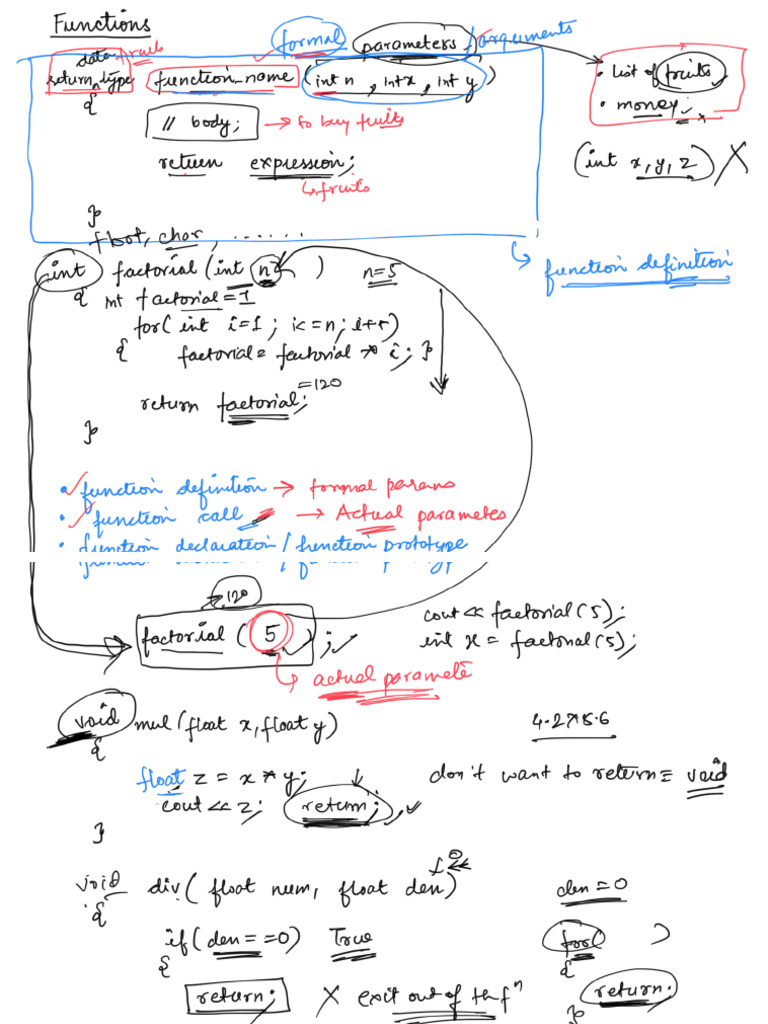 Functions
formal parameters / arguments
data fruits
return type function_name (int n, int x, int y)
{
// body; → to buy fruits
return expression;
↳ fruits
}
• list of fruits
• money; x
(int x, y, z) X
float, char, ......
↳ function definition
int factorial (int n) n=5
{ int factorial = 1
for( int i=1; i<=n; i++)
{ factorial = factorial * i; }
=120
return factorial;
}
• function definition → formal params
• function call → Actual parametes
• function declaration / function prototype
120
factorial ( 5 ); ✓
↳ actual paramete
cout << factorial(5);
int x = factorial(5);
void mul (float x, float y)
{
4.2*5.6
float z = x * y;
cout << z; return;
don't want to return = void
}
0
void div ( float num, float den)
{
den = 0
if( den == 0) True
{
return; X exit out of th fⁿ
for( )
{
return;
}